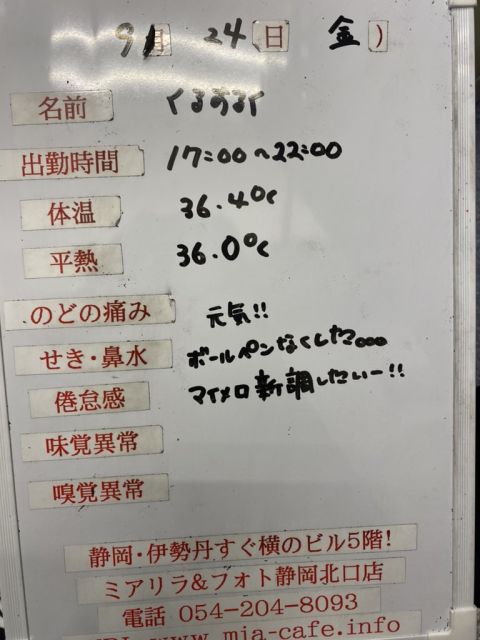 9月 24日 金)
名前 くるするく
出勤時間 17:00〜22:00
体温 36.4℃
平熱 36.0℃
のどの痛み 元気!!
せき・鼻水 ボールペンなくした。。。
倦怠感 マイメロ新調したいー!!
味覚異常
嗅覚異常
静岡・伊勢丹すぐ横のビル5階!
ミアリラ&フォト静岡北口店
電話 054-204-8093
www.mia-cafe.info